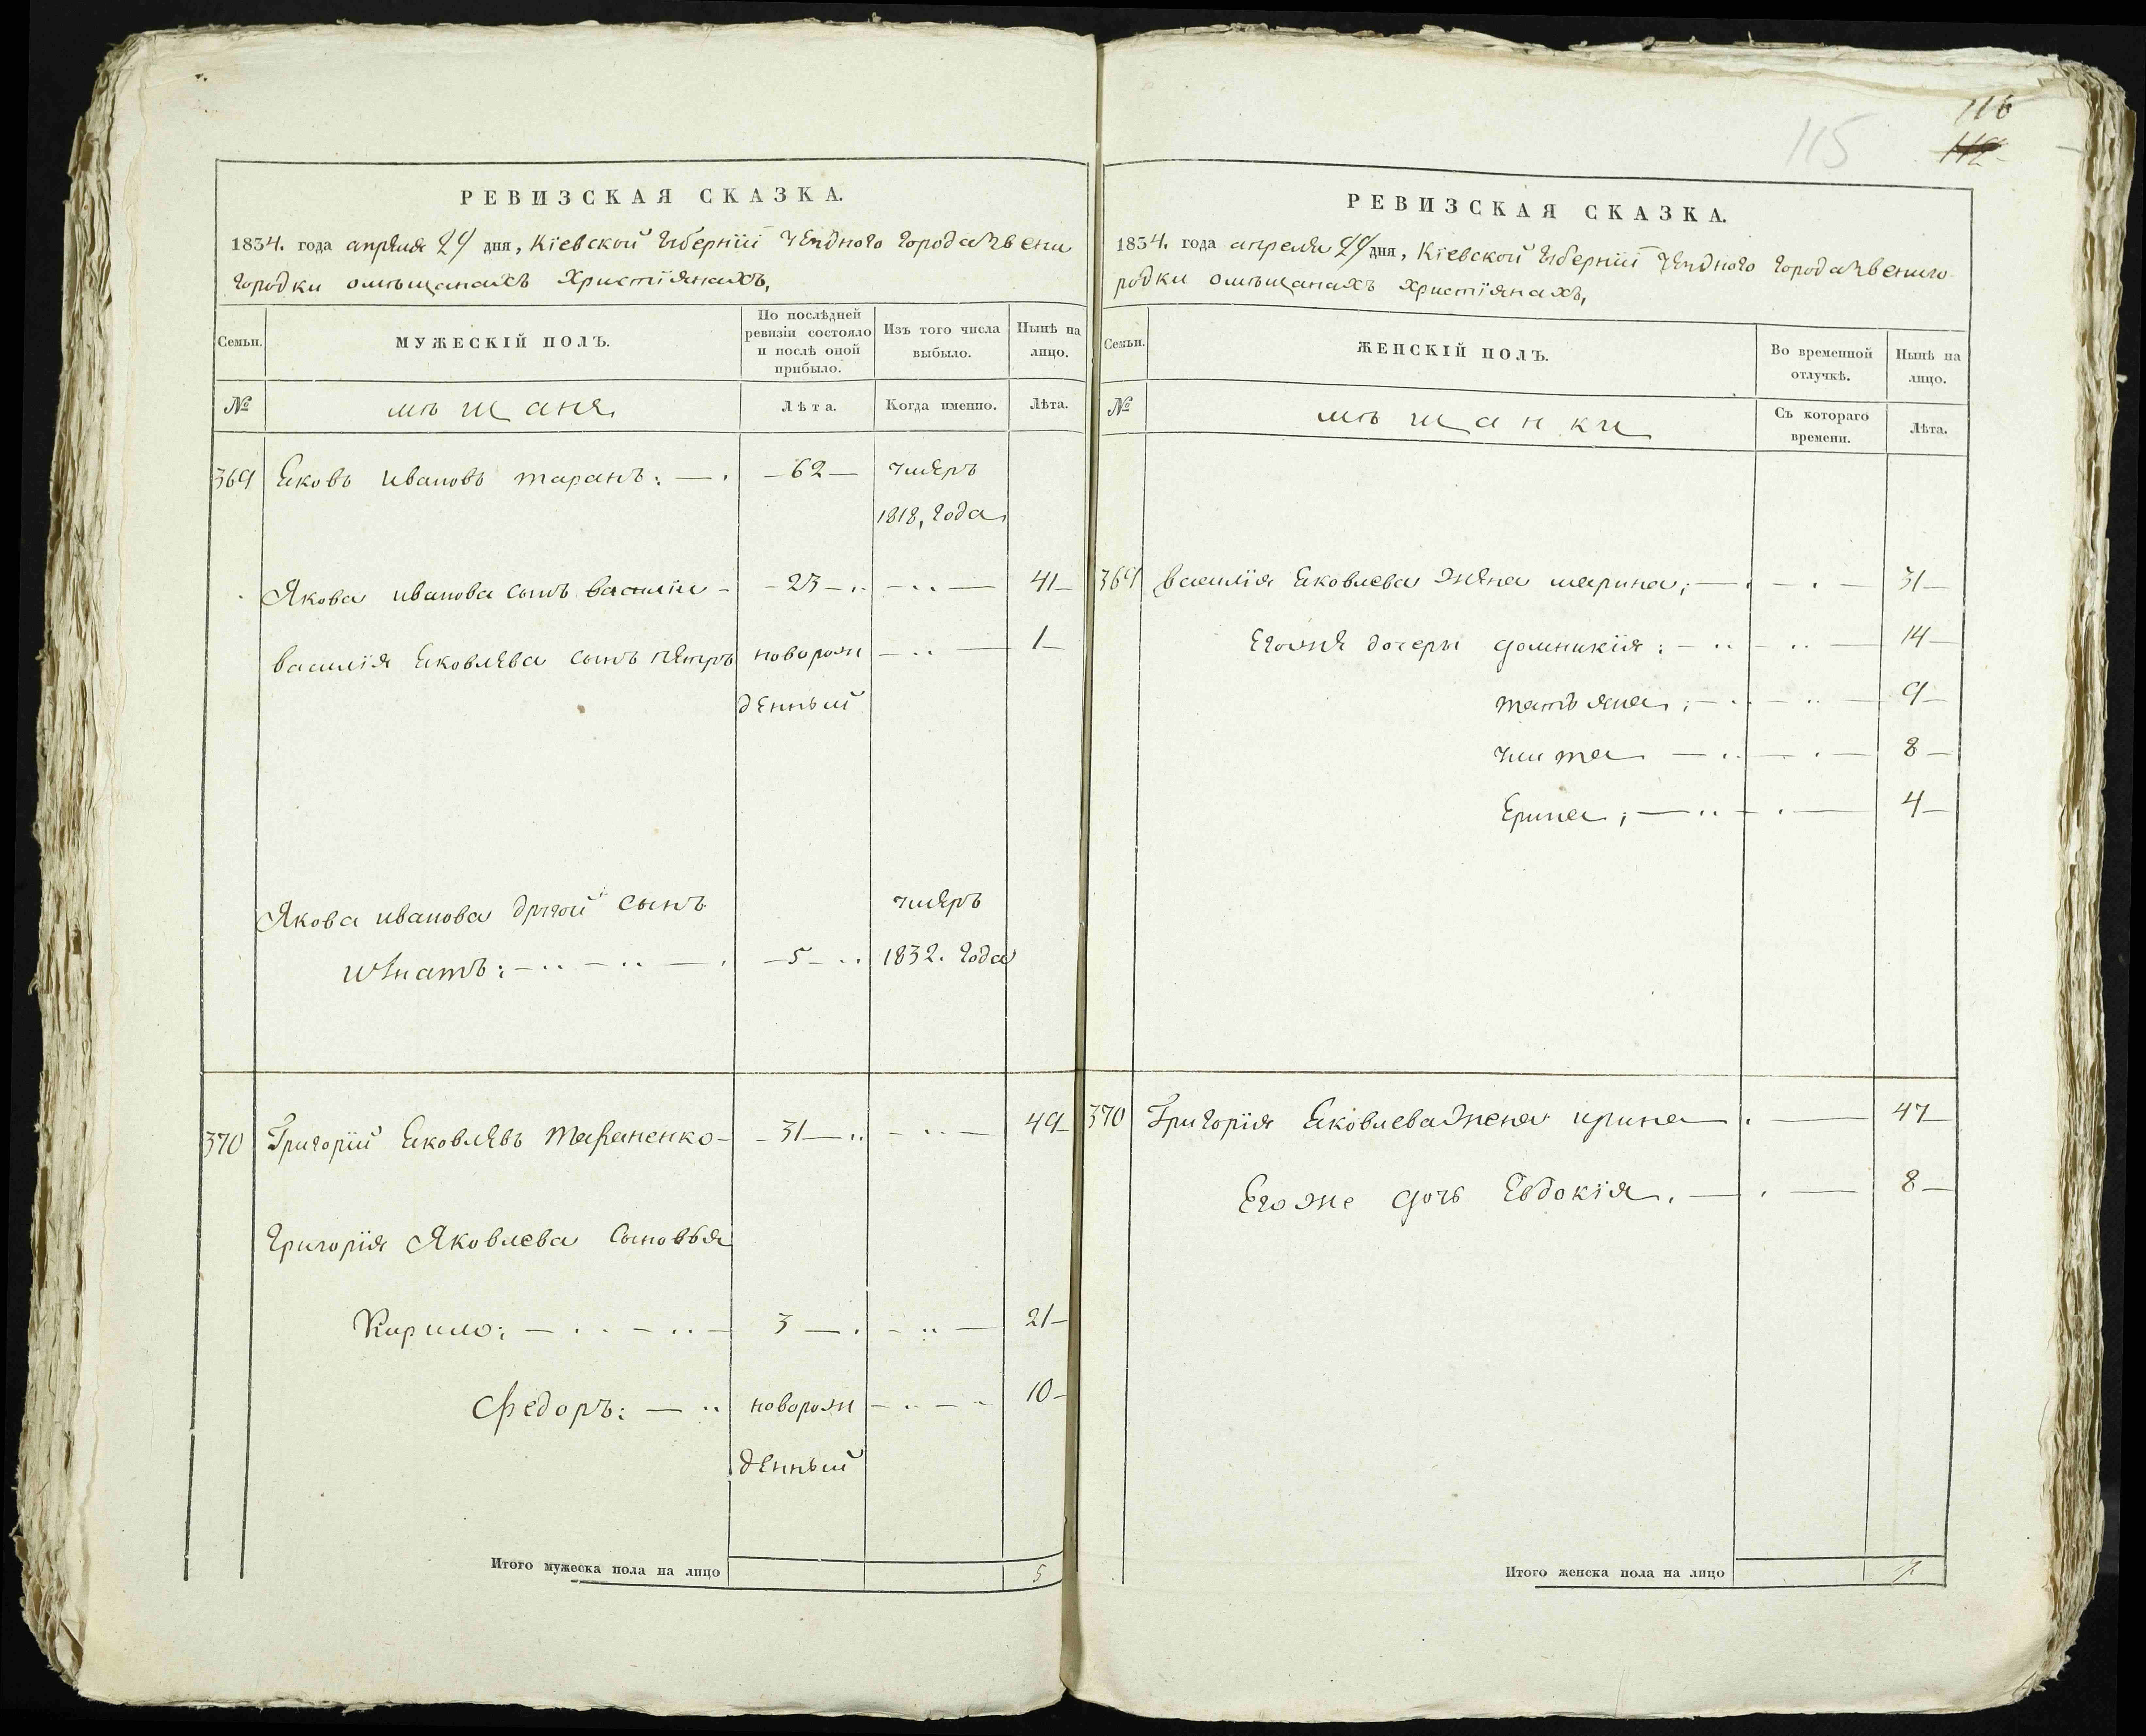 116
115
РЕВИЗСКАЯ СКАЗКА.
1834. года апреля 24 дня, Кіевской губерніи уездного города Звени
городки о мѣщанахъ христіянахъ,
Семьи.
МУЖЕСКІЙ ПОЛЪ.
По послѣдней ревизіи состояло и послѣ оной прибыло.
Изъ того числа выбыло.
Нынѣ на лицо.
№
мѣщаня
Лѣта.
Когда именно.
Лѣта.
369 Ековъ ивановъ таранъ: — 62 — умеръ
1818, года
Якова иванова сынъ василій — 23 — 41
василія Ековлева сынъ петръ новорож 1
денный
Якова иванова другой сынъ умеръ
игнатъ: — 5 — 1832. года
370 Григорій Ековлевъ тараненко — 31 — 49
григорія Яковлева сыновья
Кирило: — 3 — 21
Федоръ: — новорож 10
денный
Итого мужеска пола на лицо 5
РЕВИЗСКАЯ СКАЗКА.
1834. года апреля 24 дня, Кіевской губерніи уездного города Звениго
родки о мѣщанахъ христіянахъ,
Семьи.
ЖЕНСКІЙ ПОЛЪ.
Во временной отлучкѣ.
Нынѣ на лицо.
№
мѣщанки
Съ котораго времени.
Лѣта.
369 василія Ековлева жена марина; — 31
Егожѣ дочери домникія: — 14
татъяна; — 9
улита — 8
Ерина; — 4
370 Григорія Ековлева жена ирина — 47
Егоже дочь Евдокія. — 8
Итого женска пола на лицо 7